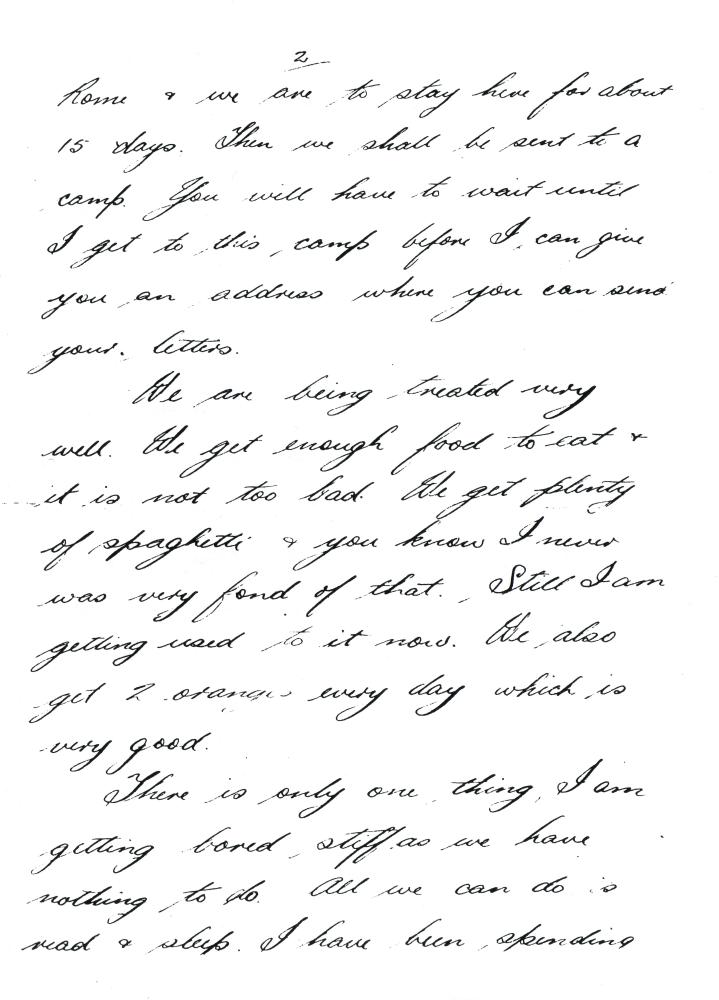 2
Rome & we are to stay here for about
15 days. Then we shall be sent to a
camp. You will have to wait until
I get to this camp before I can give
you an address where you can send
your letters.
We are being treated very
well. We get enough food to eat &
it is not too bad. We get plenty
of spaghetti & you know I never
was very fond of that. Still I am
getting used to it now. We also
get 2 oranges every day which is
very good.
There is only one thing, I am
getting bored stiff as we have
nothing to do. All we can do is
read & sleep. I have been spending